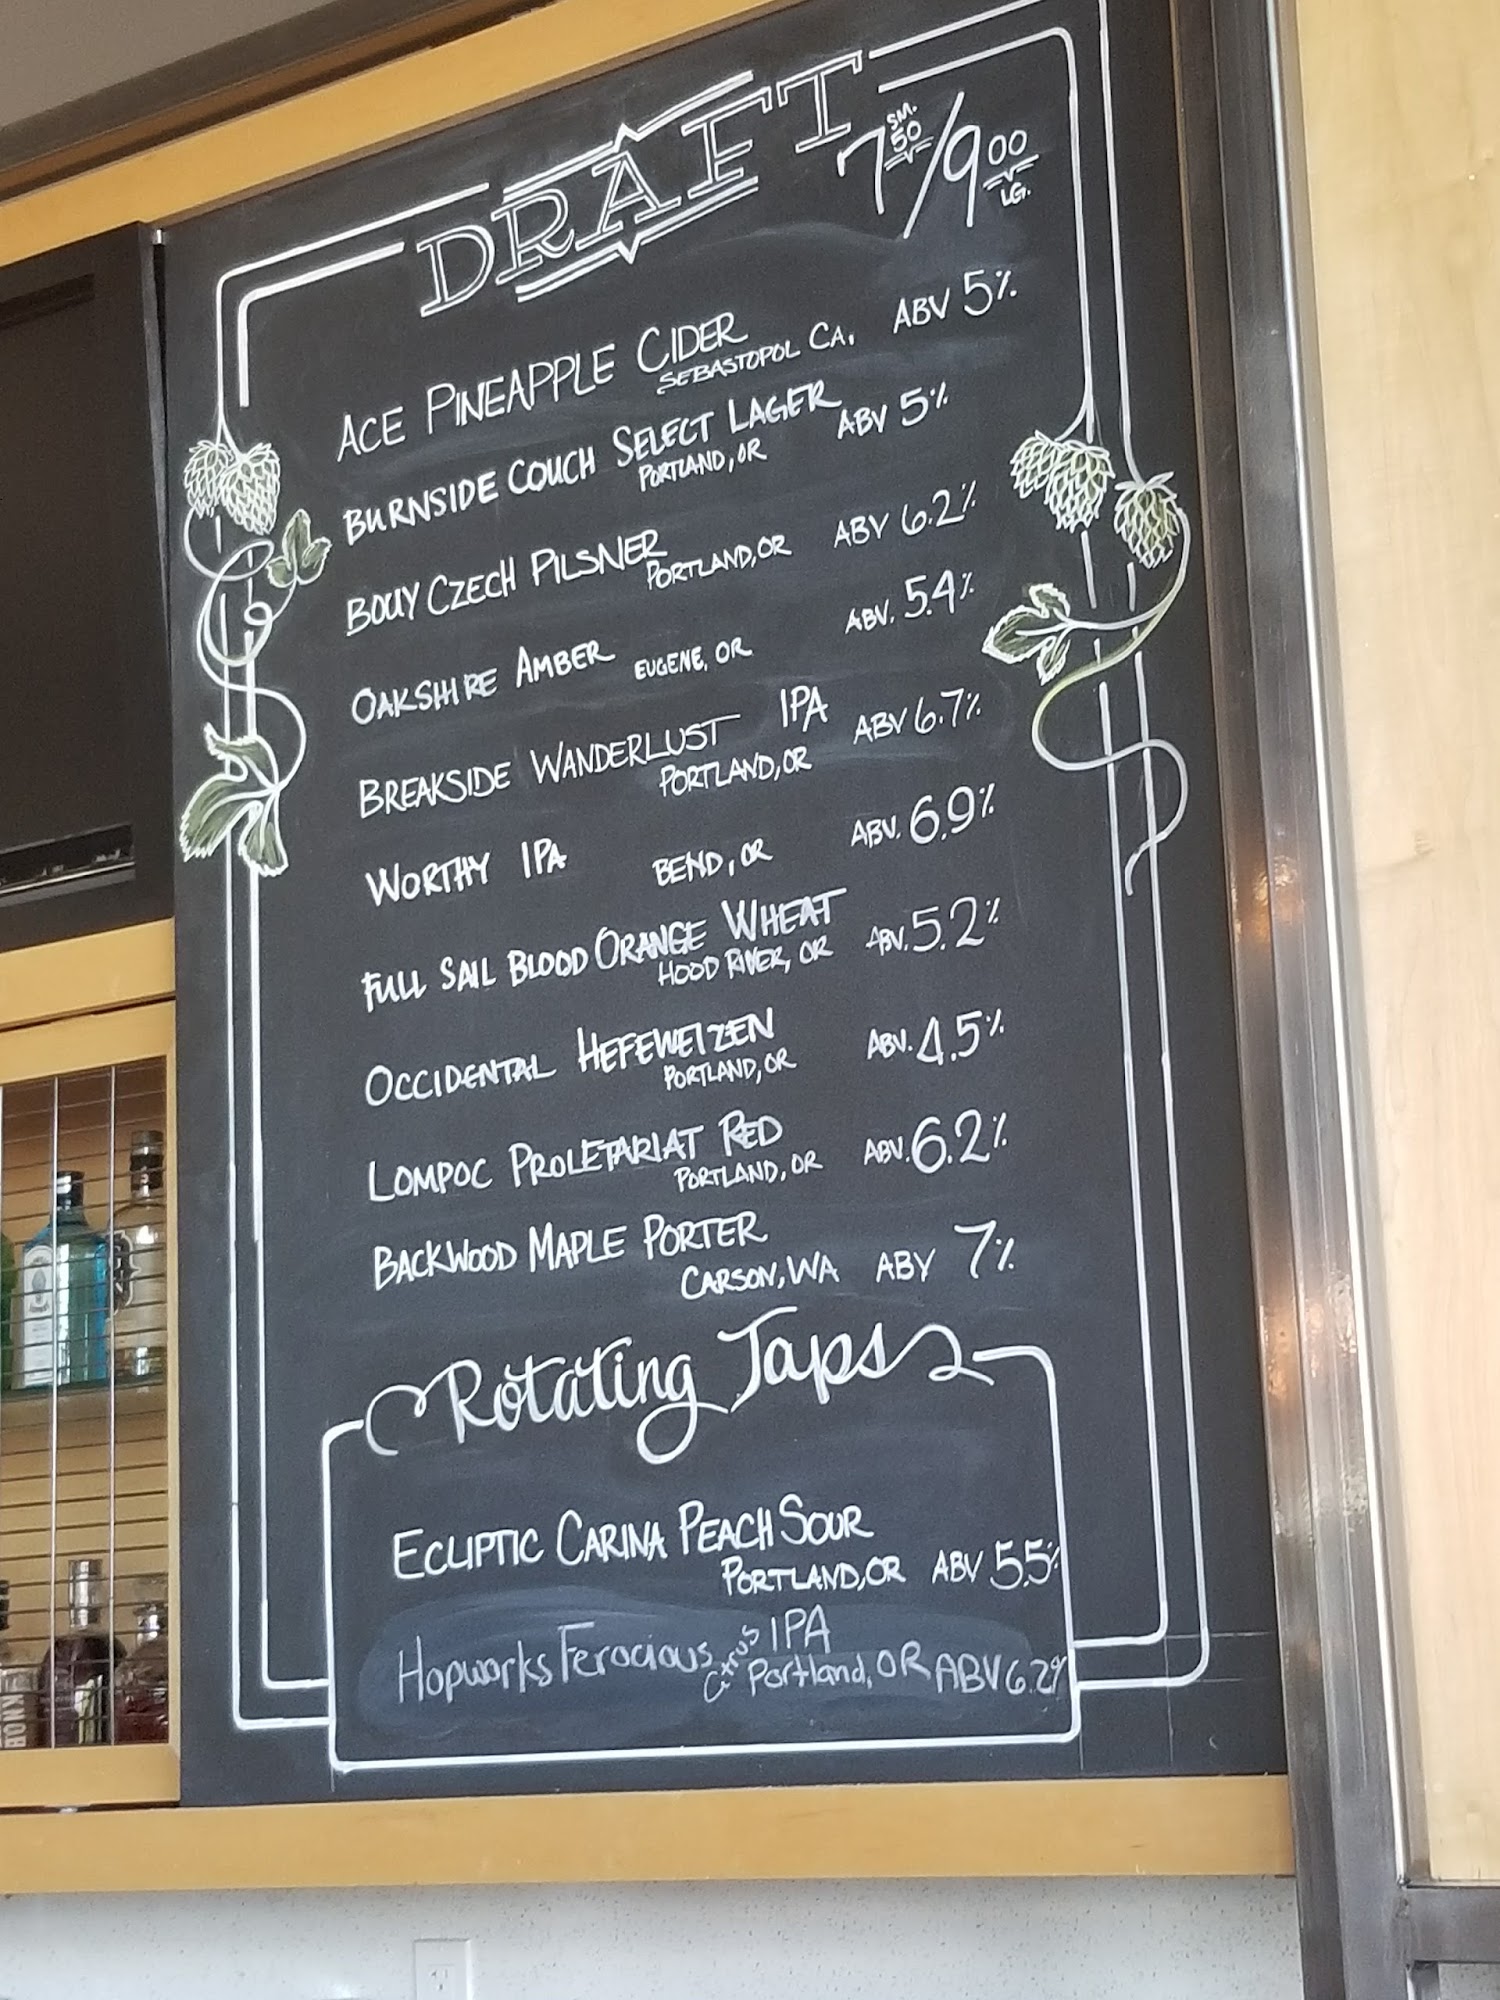 DRAFT 7 SM. 50 / 9 00 LG.
ACE PINEAPPLE CIDER
SEBASTOPOL CA. ABV 5%
BURNSIDE COUCH SELECT LAGER
PORTLAND, OR ABV 5%
BOUY CZECH PILSNER
PORTLAND, OR ABV 6.2%
OAKSHIRE AMBER EUGENE, OR ABV. 5.4%
BREAKSIDE WANDERLUST IPA
PORTLAND, OR ABV 6.7%
WORTHY IPA BEND, OR ABV. 6.9%
FULL SAIL BLOOD ORANGE WHEAT
HOOD RIVER, OR ABV. 5.2%
OCCIDENTAL HEFEWEIZEN
PORTLAND, OR ABV. 4.5%
LOMPOC PROLETARIAT RED
PORTLAND, OR ABV. 6.2%
BACKWOOD MAPLE PORTER
CARSON, WA ABV 7%
Rotating Taps
ECLIPTIC CARINA PEACH SOUR
PORTLAND, OR ABV 5.5%
Hopworks Ferocious Citrus IPA
Portland, OR ABV 6.2%
KNOB